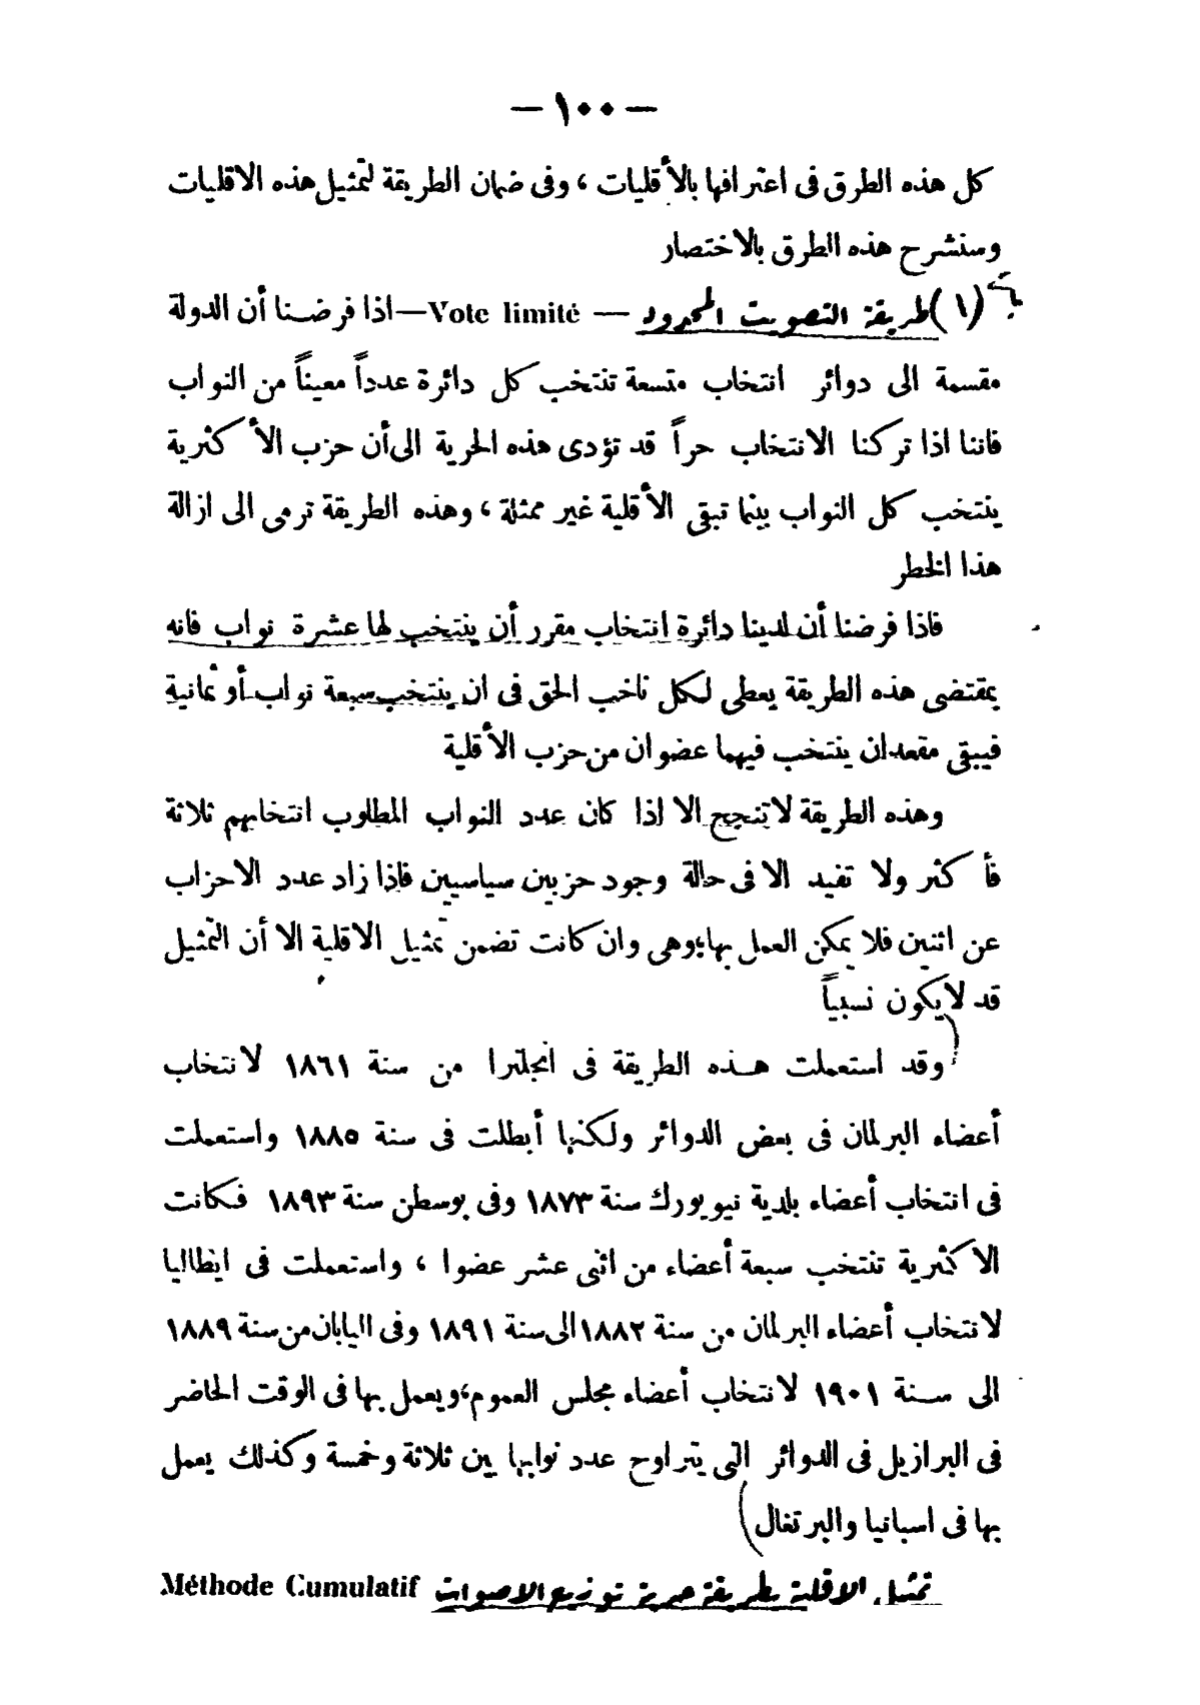 — ١٠٠ —
كل هذه الطرق فى اعترافها بالأقليات ، وفى ضمان الطريقة لتمثيل هذه الاقليات
وسنشرح هذه الطرق بالاختصار
(١) طريقة التصويت المحدود — Vote limité — اذا فرضنا أن الدولة
مقسمة الى دوائر انتخاب متسعة تنتخب كل دائرة عدداً معيناً من النواب
فاننا اذا تركنا الانتخاب حراً قد تؤدى هذه الحرية الى أن حزب الأكثرية
ينتخب كل النواب بينما تبقى الأقلية غير ممثلة ، وهذه الطريقة ترمى الى ازالة
هذا الخطر
فاذا فرضنا أن لدينا دائرة انتخاب مقرر أن ينتخب لها عشرة نواب فانه
بمقتضى هذه الطريقة يعطى لكل ناخب الحق فى ان ينتخب سبعة نواب أو ثمانية
فيبقى مقعدان ينتخب فيهما عضوان من حزب الأقلية
وهذه الطريقة لا تنجح الا اذا كان عدد النواب المطلوب انتخابهم ثلاثة
فأكثر ولا تفيد الا فى حالة وجود حزبين سياسيين فاذا زاد عدد الاحزاب
عن اثنين فلا يمكن العمل بها؛ وهى وان كانت تضمن تمثيل الاقلية الا أن التمثيل
قد لا يكون نسبياً
وقد استعملت هذه الطريقة فى انجلترا من سنة ١٨٦١ لانتخاب
أعضاء البرلمان فى بعض الدوائر ولكنها أبطلت فى سنة ١٨٨٥ واستعملت
فى انتخاب أعضاء بلدية نيويورك سنة ١٨٧٣ وفى بوسطن سنة ١٨٩٣ فكانت
الاكثرية تنتخب سبعة أعضاء من اثنى عشر عضوا ، واستعملت فى ايطاليا
لانتخاب أعضاء البرلمان من سنة ١٨٨٢ الى سنة ١٨٩١ وفى اليابان من سنة ١٨٨٩
الى سنة ١٩٠١ لانتخاب أعضاء مجلس العموم، ويعمل بها فى الوقت الحاضر
فى البرازيل فى الدوائر التى يتراوح عدد نوابها بين ثلاثة وخمسة وكذلك يعمل
بها فى اسبانيا والبرتغال
تمثيل الاقلية بطريقة حرية توزيع الاصوات Méthode Cumulatif